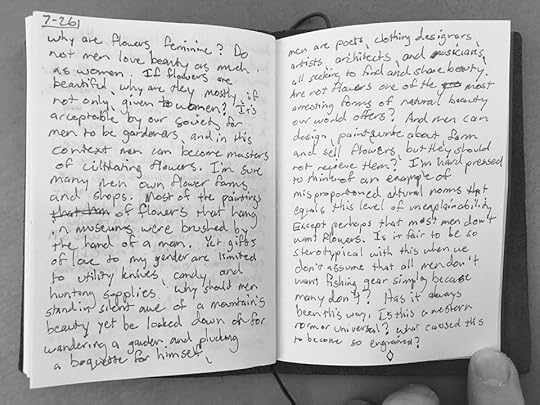 7-261
why are flowers feminine? Do
not men love beauty as much
as women. If flowers are
beautiful, why are they mostly, if
not only, given to women? It's
acceptable by our society for
men to be gardeners, and in this
context men can become masters
of cultivating flowers. I'm sure
many men own flower farms
and shops. Most of the paintings
of flowers that hang
in museums were brushed by
the hand of a man. Yet gifts
of love to my gender are limited
to utility knives, candy, and
hunting supplies. Why should men
stand in silent awe of a mountain's
beauty yet be looked down of for
wandering a garden and plucking
a boquette for himself,
men are poets, clothing designers,
artists, architects, and musicians,
all seeking to find and share beauty.
Are not flowers one of the most
arresting forms of natural beauty
our world offers? And men can
design, paint, write about, farm
and sell flowers, but they should
not recieve them? I'm hard pressed
to think of an example of
misproportioned cltural norms that
equals this level of unexplainability.
Except perhaps that most men don't
want flowers. Is it fair to be so
sterotypical with this when we
don't assume that all men don't
want fishing gear simply because
many don't? Has it always
been this way. Is this a western
norm or universal? what caused this
to become so engrained?